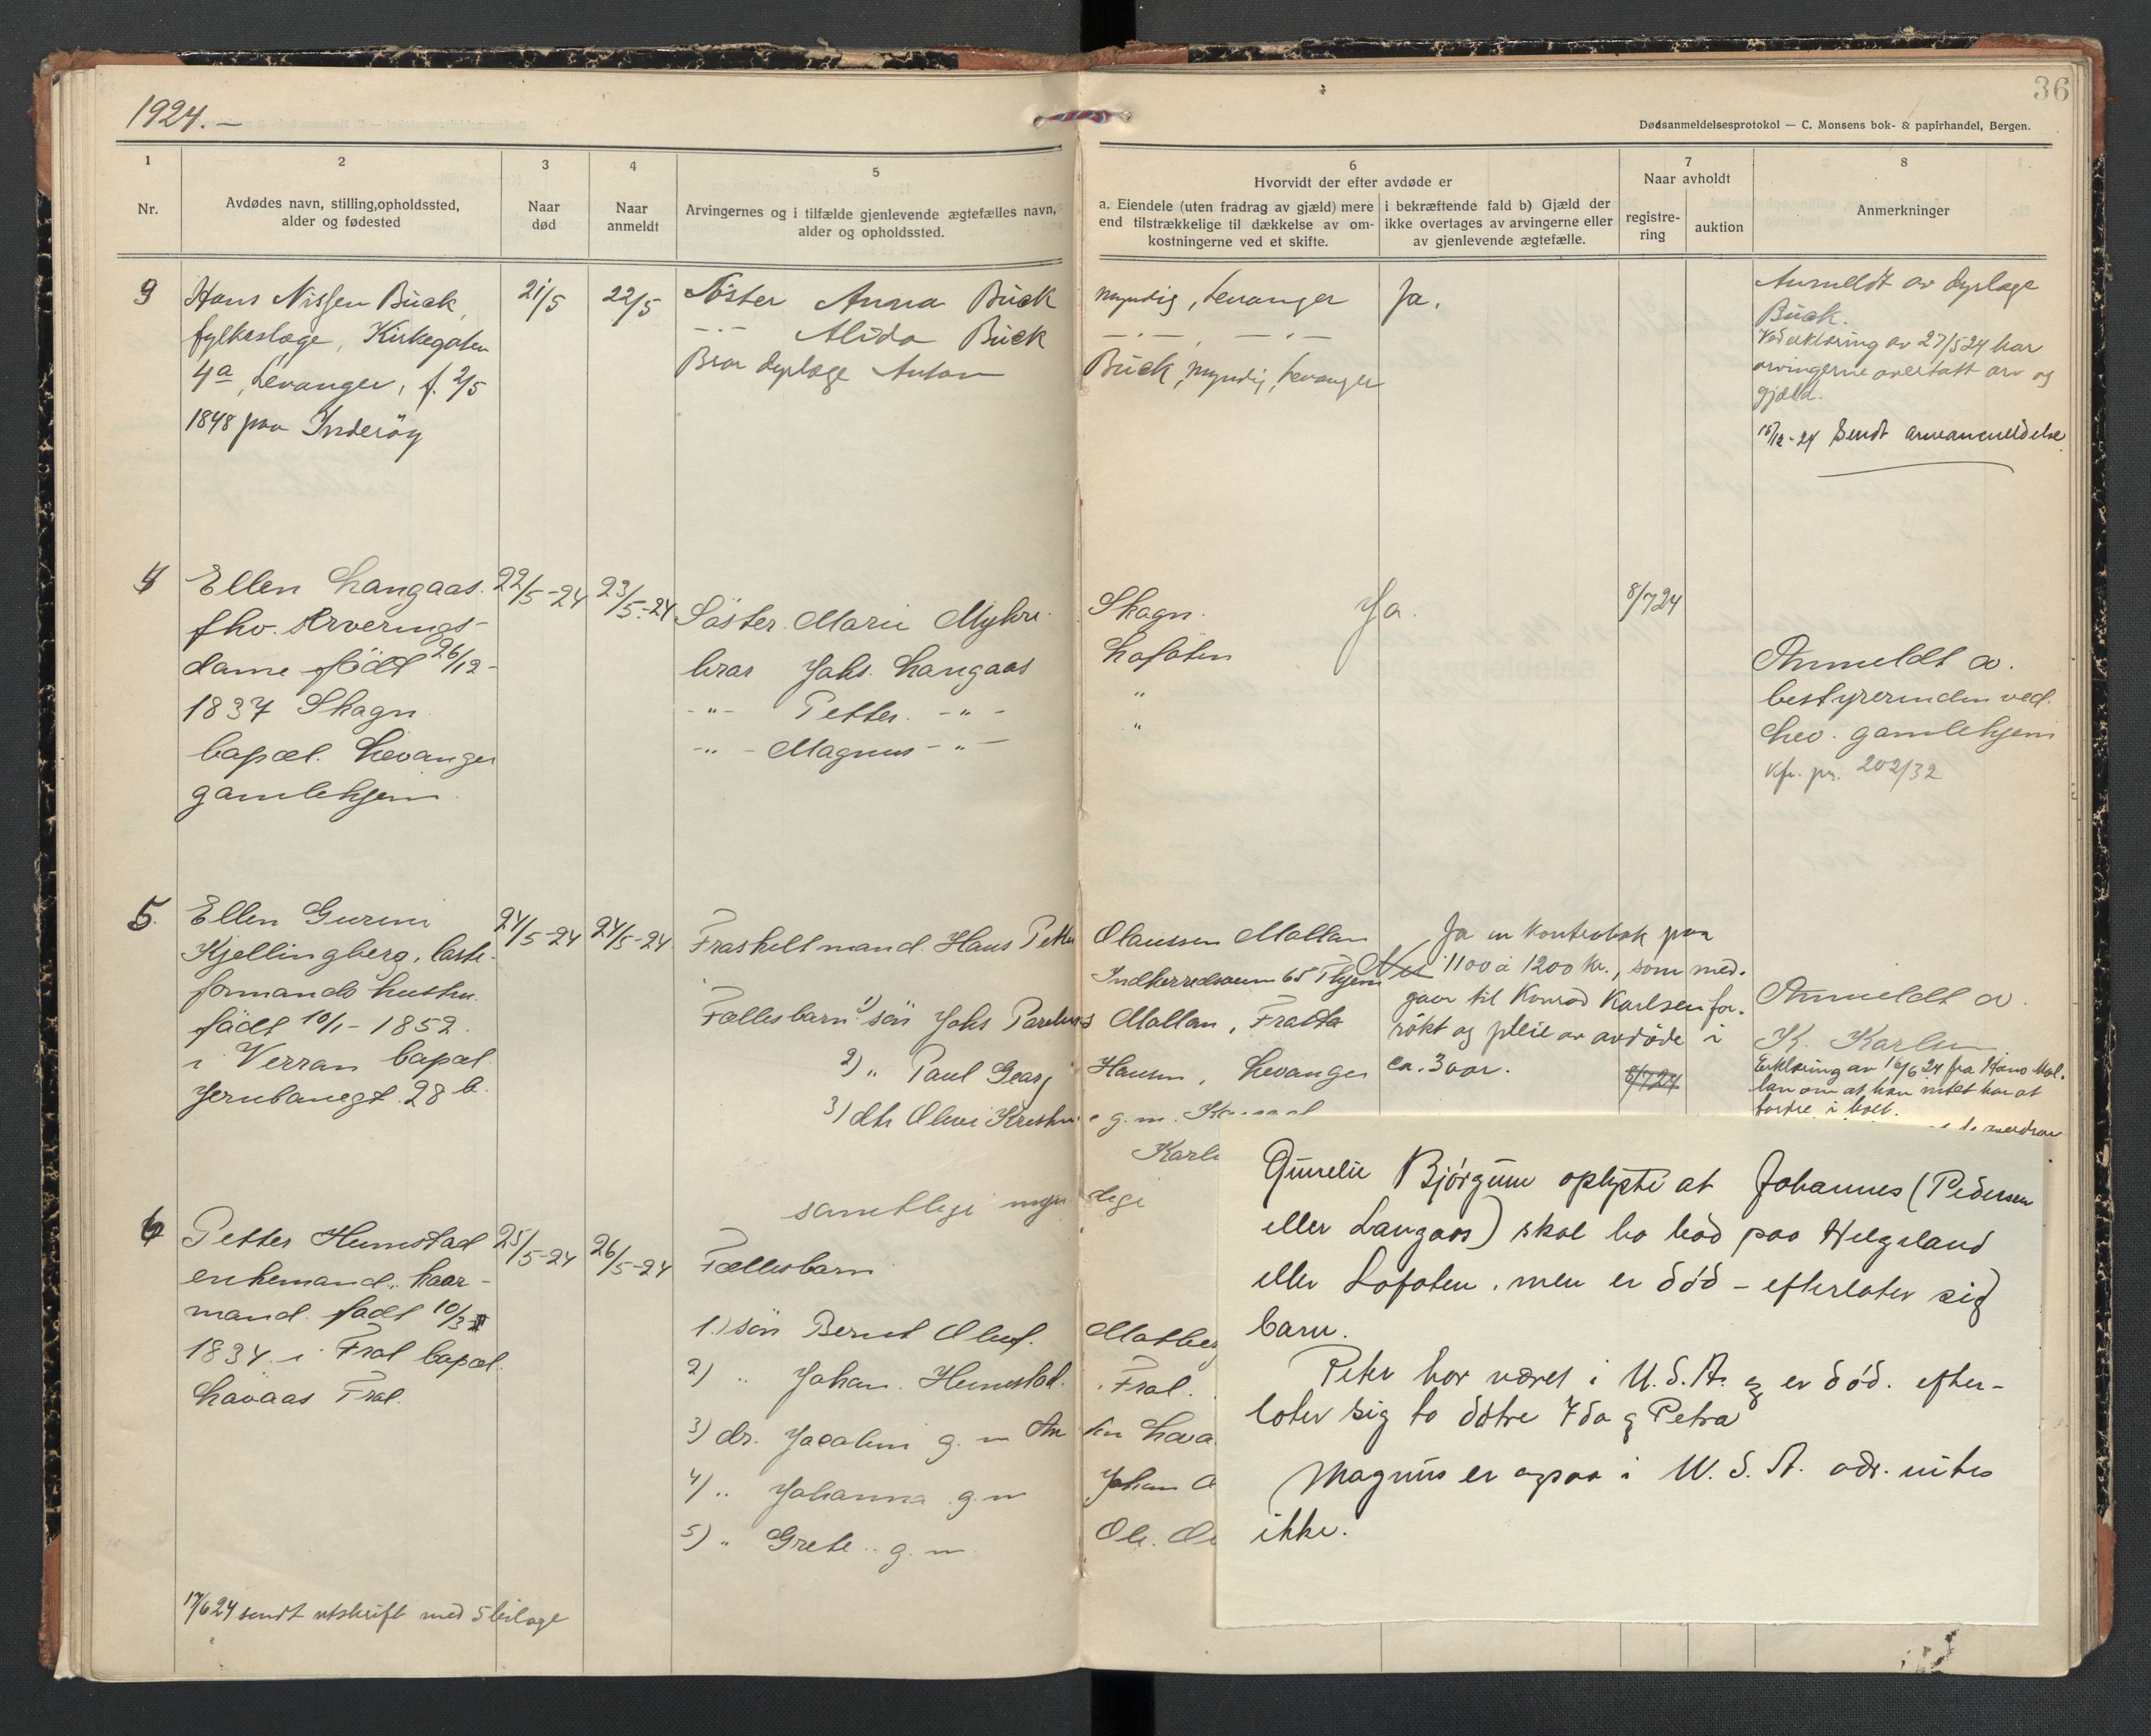 1924.-
36
Dødsanmeldelsesprotokol — C. Monsens bok- & papirhandel, Bergen.
1
2
3
4
5
6
7
8
Nr.
Avdødes navn, stilling, opholdssted,
alder og fødested
Naar
død
Naar
anmeldt
Arvingernes og i tilfælde gjenlevende ægtefælles navn,
alder og opholdssted.
Hvorvidt der efter avdøde er
a. Eiendele (uten fradrag av gjæld) mere
end tilstrækkelige til dækkelse av om-
kostningerne ved et skifte.
i bekræftende fald b) Gjæld der
ikke overtages av arvingerne eller
av gjenlevende ægtefælle.
Naar avholdt
registre-
ring
auktion
Anmerkninger
3
Hans Nissen Buck,
fylkeslæge, Kirkegaten
4a, Levanger, f. 2/5
1848 paa Inderöy
21/5
22/5
Söster Anna Buck myndig, Levanger
-"- Alida Buck -"- -"-
Bror dyrlæge Anton Buck, myndig, Levanger
Ja.
Anmeldt av dyrlæge
Buck.
Ved erklæring av 27/5 24 har
arvingerne overtatt arv og
gjæld.
15/12-24 Sendt arveanmeldelse.
4
Ellen Langaas.
fhv.
dame födt 26/12-
1837 Skogn
bopæl. Levanger
gamlehjem.
22/5-24
23/5-24
Söster. Marie Myhre. Skogn.
bror Johs. Langaas Lofoten
-"- Petter. -"- "
-"- Magnus -"- "
Ja.
8/7 24
Anmeldt av.
bestyrerinden ved.
Lev. gamlehjem
kfr. pr. 202/32
5.
Ellen Gurine
Kjellingberg, laste-
formands hustru.
födt 10/1-1852.
i Verran bopæl
Jernbanegt. 28 b.
24/5-24
24/5-24.
Fraskilt mand. Hans Petter Olaussen Mollan
Indherredsveien 65 Thjem
Fællesbarn 1) sön Johs Parelius Mollan, Frosta
2) " Paul Georg Hansen, Levanger
3) dtr Oline Kristine g.m. Konrad
Karl
samtlige myndige
Nei
Ja en kontrabok paa
1100 à 1200 kr., som med-
gaar til Konrad Karlsen for
rökt og pleie av avdöde i
ca. 3 aar.
8/7 24
Anmeldt av.
K. Karlsen
Erklæring av 16/6 24 fra Hans Mol-
lan om at han intet har at
fordre i boet.
6
Petter Hemstad
enkemand, kaar-
mand. födt 10/3
1834. i Frol bopæl.
Havaas Frol.
25/5-24
26/5-24
Fællesbarn
1.) sön Bernt Oluf.
2) " Johan. Hemstad. Frol.
3) dr. Jacobine g. m
4) " Johanna g. m Johan
5) " Grete g. m. Ole.
17/6 24 sendt utskrift med 5 bilage
Gunelie Bjørgum oplyste at Johannes (Pedersen
eller Langaas) skal ha bod paa Helgeland
eller Lofoten, men er død - efterlater sig
barn.
Peter har været i U.S.A. og er død. efter-
later sig to døtre Ida og Petra
Magnus er ogsaa i U.S.A. adr. vites
ikke.